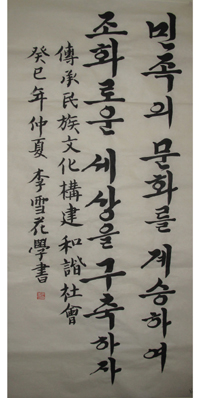 민족의 문화를 계승하여
조화로운 세상을 구축하자
傳承民族文化構建和諧社會
癸巳年仲夏 李雪花學書